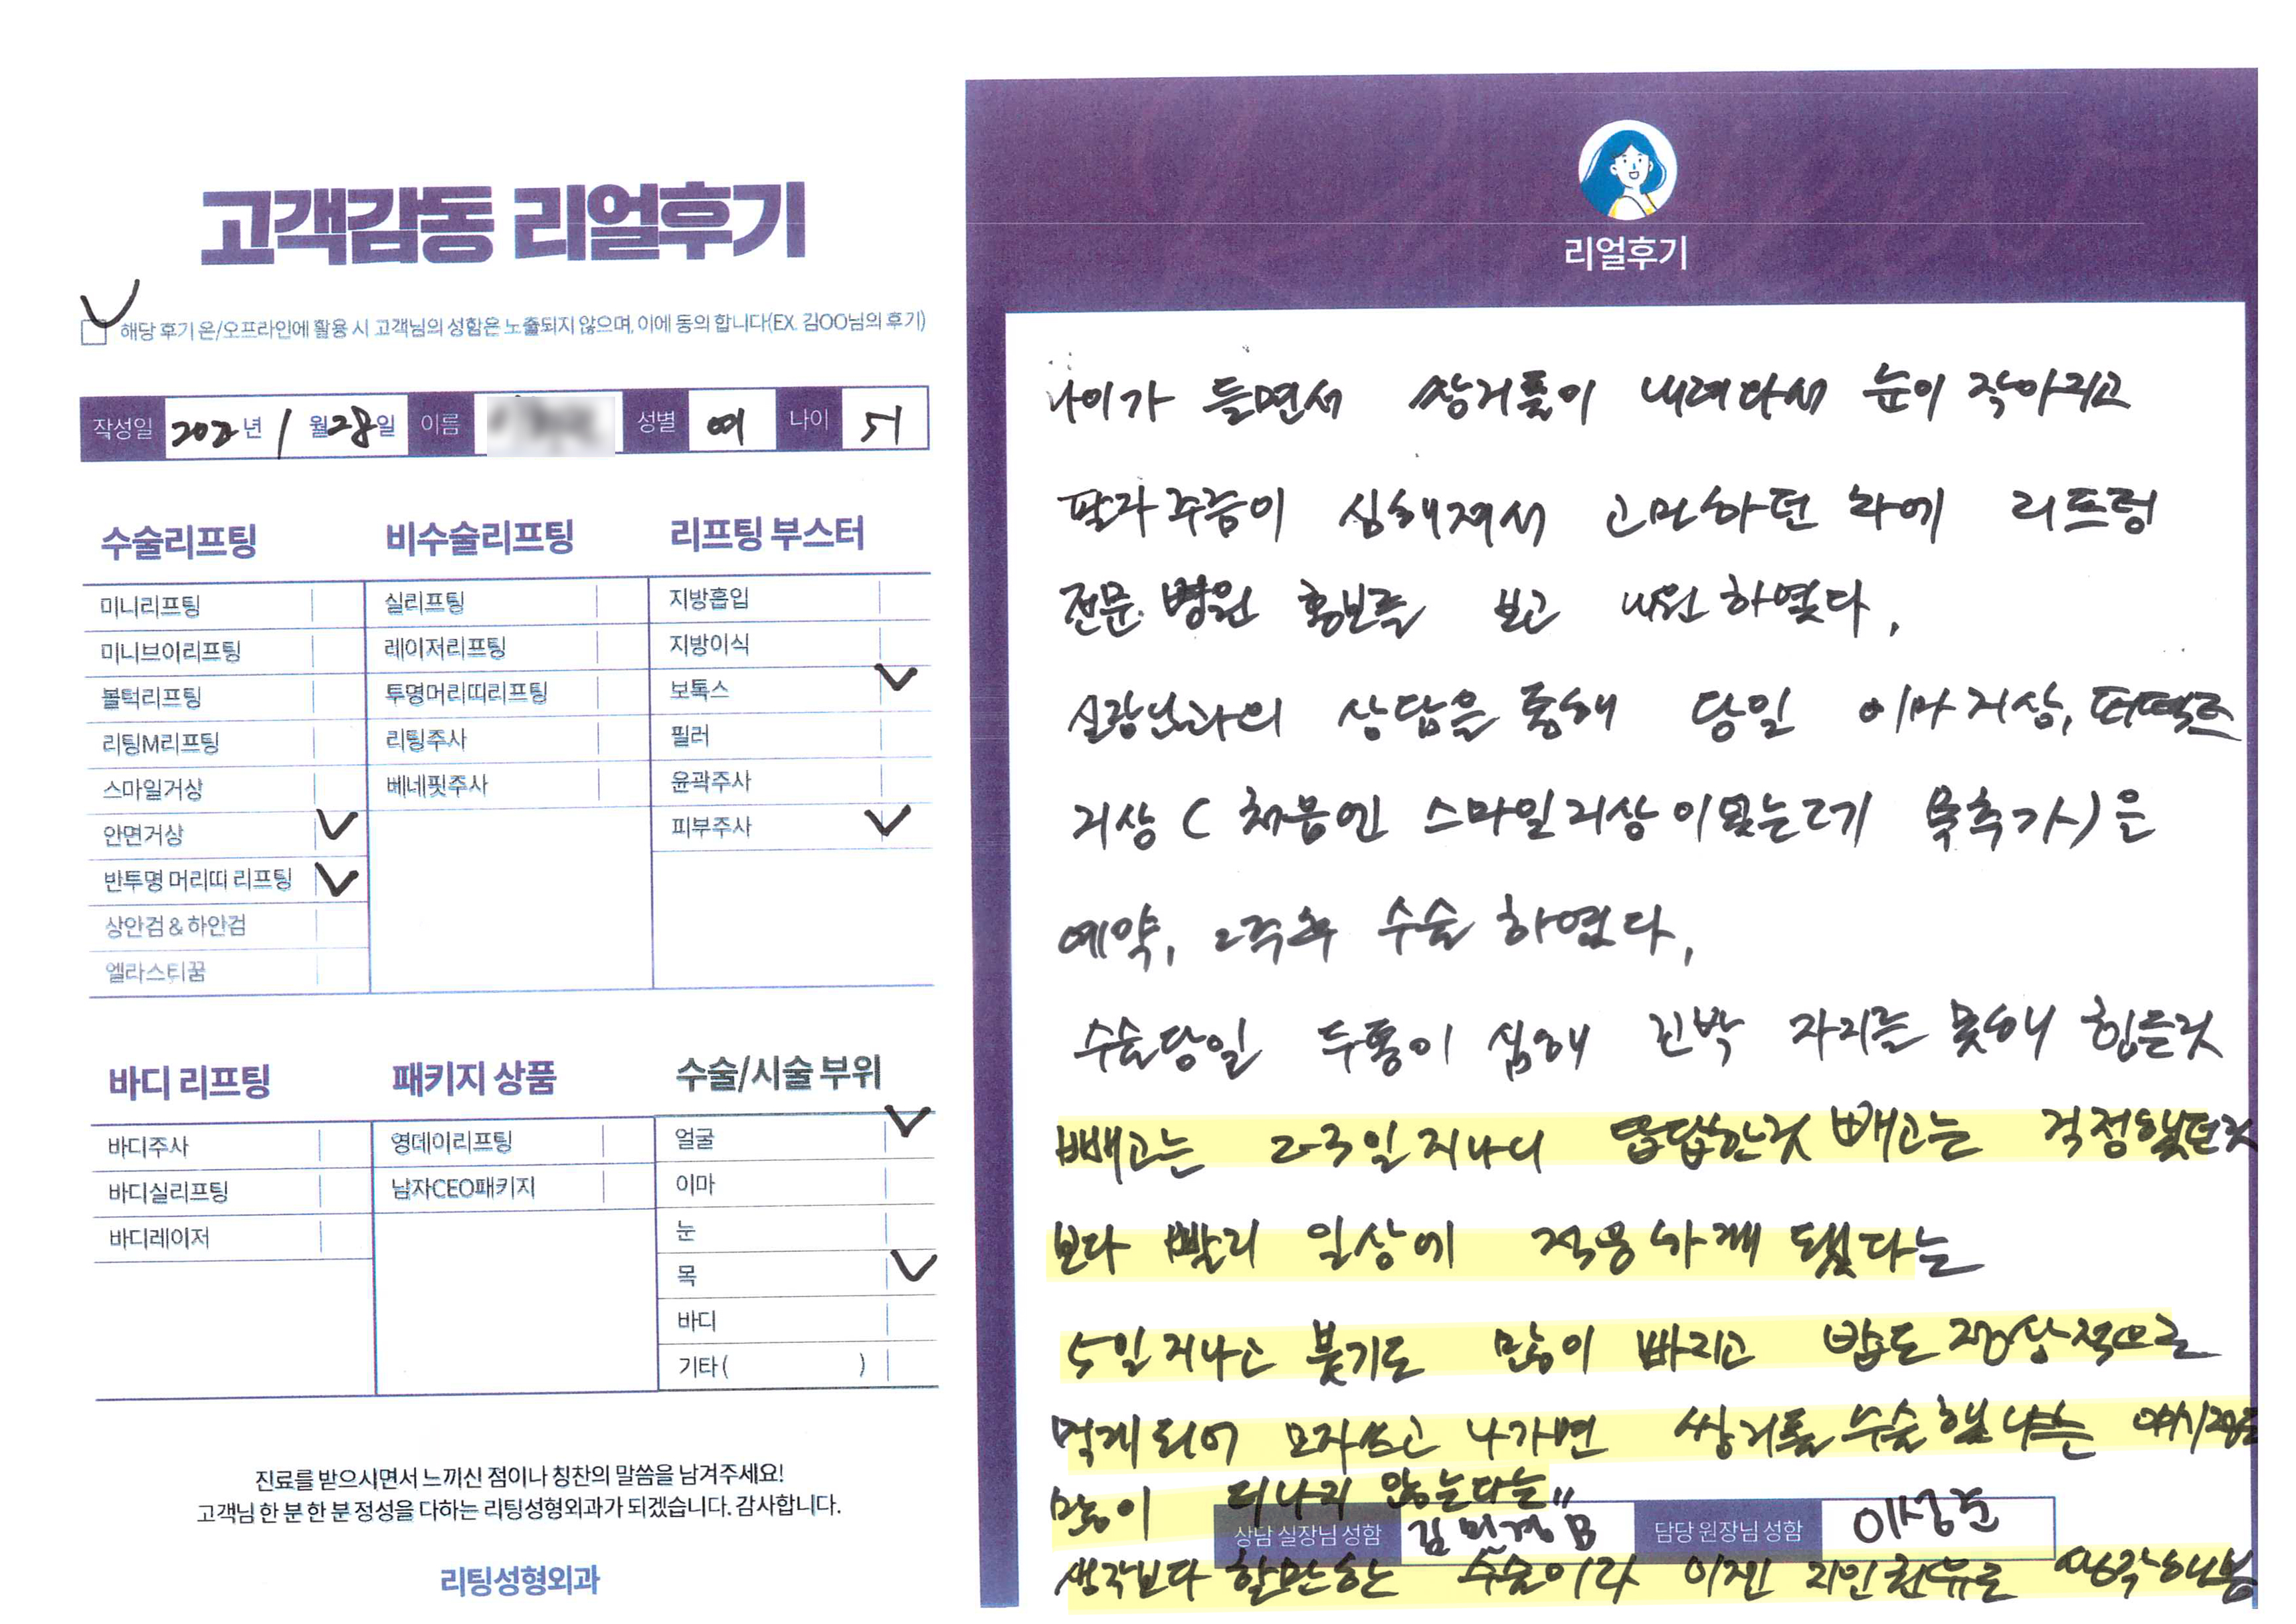 고객감동 리얼후기
해당 후기 온/오프라인에 활용 시 고객님의 성함은 노출되지 않으며, 이에 동의 합니다(EX. 김OO님의 후기)
작성일 202 년 1 월 28 일 이름 성별 여 나이 51
수술리프팅
미니리프팅
미니브이리프팅
볼턱리프팅
리팅M리프팅
스마일거상
안면거상
반투명 머리띠 리프팅
상안검 & 하안검
엘라스티꿈
비수술리프팅
실리프팅
레이저리프팅
투명머리띠리프팅
리팅주사
베네핏주사
리프팅 부스터
지방흡입
지방이식
보톡스
필러
윤곽주사
피부주사
바디 리프팅
바디주사
바디실리프팅
바디레이저
패키지 상품
영데이리프팅
남자CEO패키지
수술/시술 부위
얼굴
이마
눈
목
바디
기타 ( )
진료를 받으시면서 느끼신 점이나 칭찬의 말씀을 남겨주세요!
고객님 한 분 한 분 정성을 다하는 리팅성형외과가 되겠습니다. 감사합니다.
리팅성형외과
리얼후기
나이가 들면서 쌍거풀이 내려와서 눈이 작아지고
팔자주름이 심해져서 고민하던 차에 리프팅
전문 병원 홍보를 보고 내원하였다.
실장님과의 상담을 통해 당일 이마거상, 퍼펙트
거상 ( 처음엔 스마일거상이었는데 목추가)은
예약, 2주후 수술 하였다.
수술당일 두통이 심해 긴박 자리를 못해 힘든것
빼고는 2-3일 지나니 답답한것 빼고는 걱정했던것
보다 빨리 일상에 적응하게 됐다는
5일 지나고 붓기도 많이 빠지고 밥도 정상적으로
먹게되어 모자쓰고 나가면 쌍거풀 수술했냐는
많이 티나지 않는다는"
상담 실장님 성함 김 B 담당 원장님 성함
생각보다 할만한 수술이라 이젠 지인 권유로